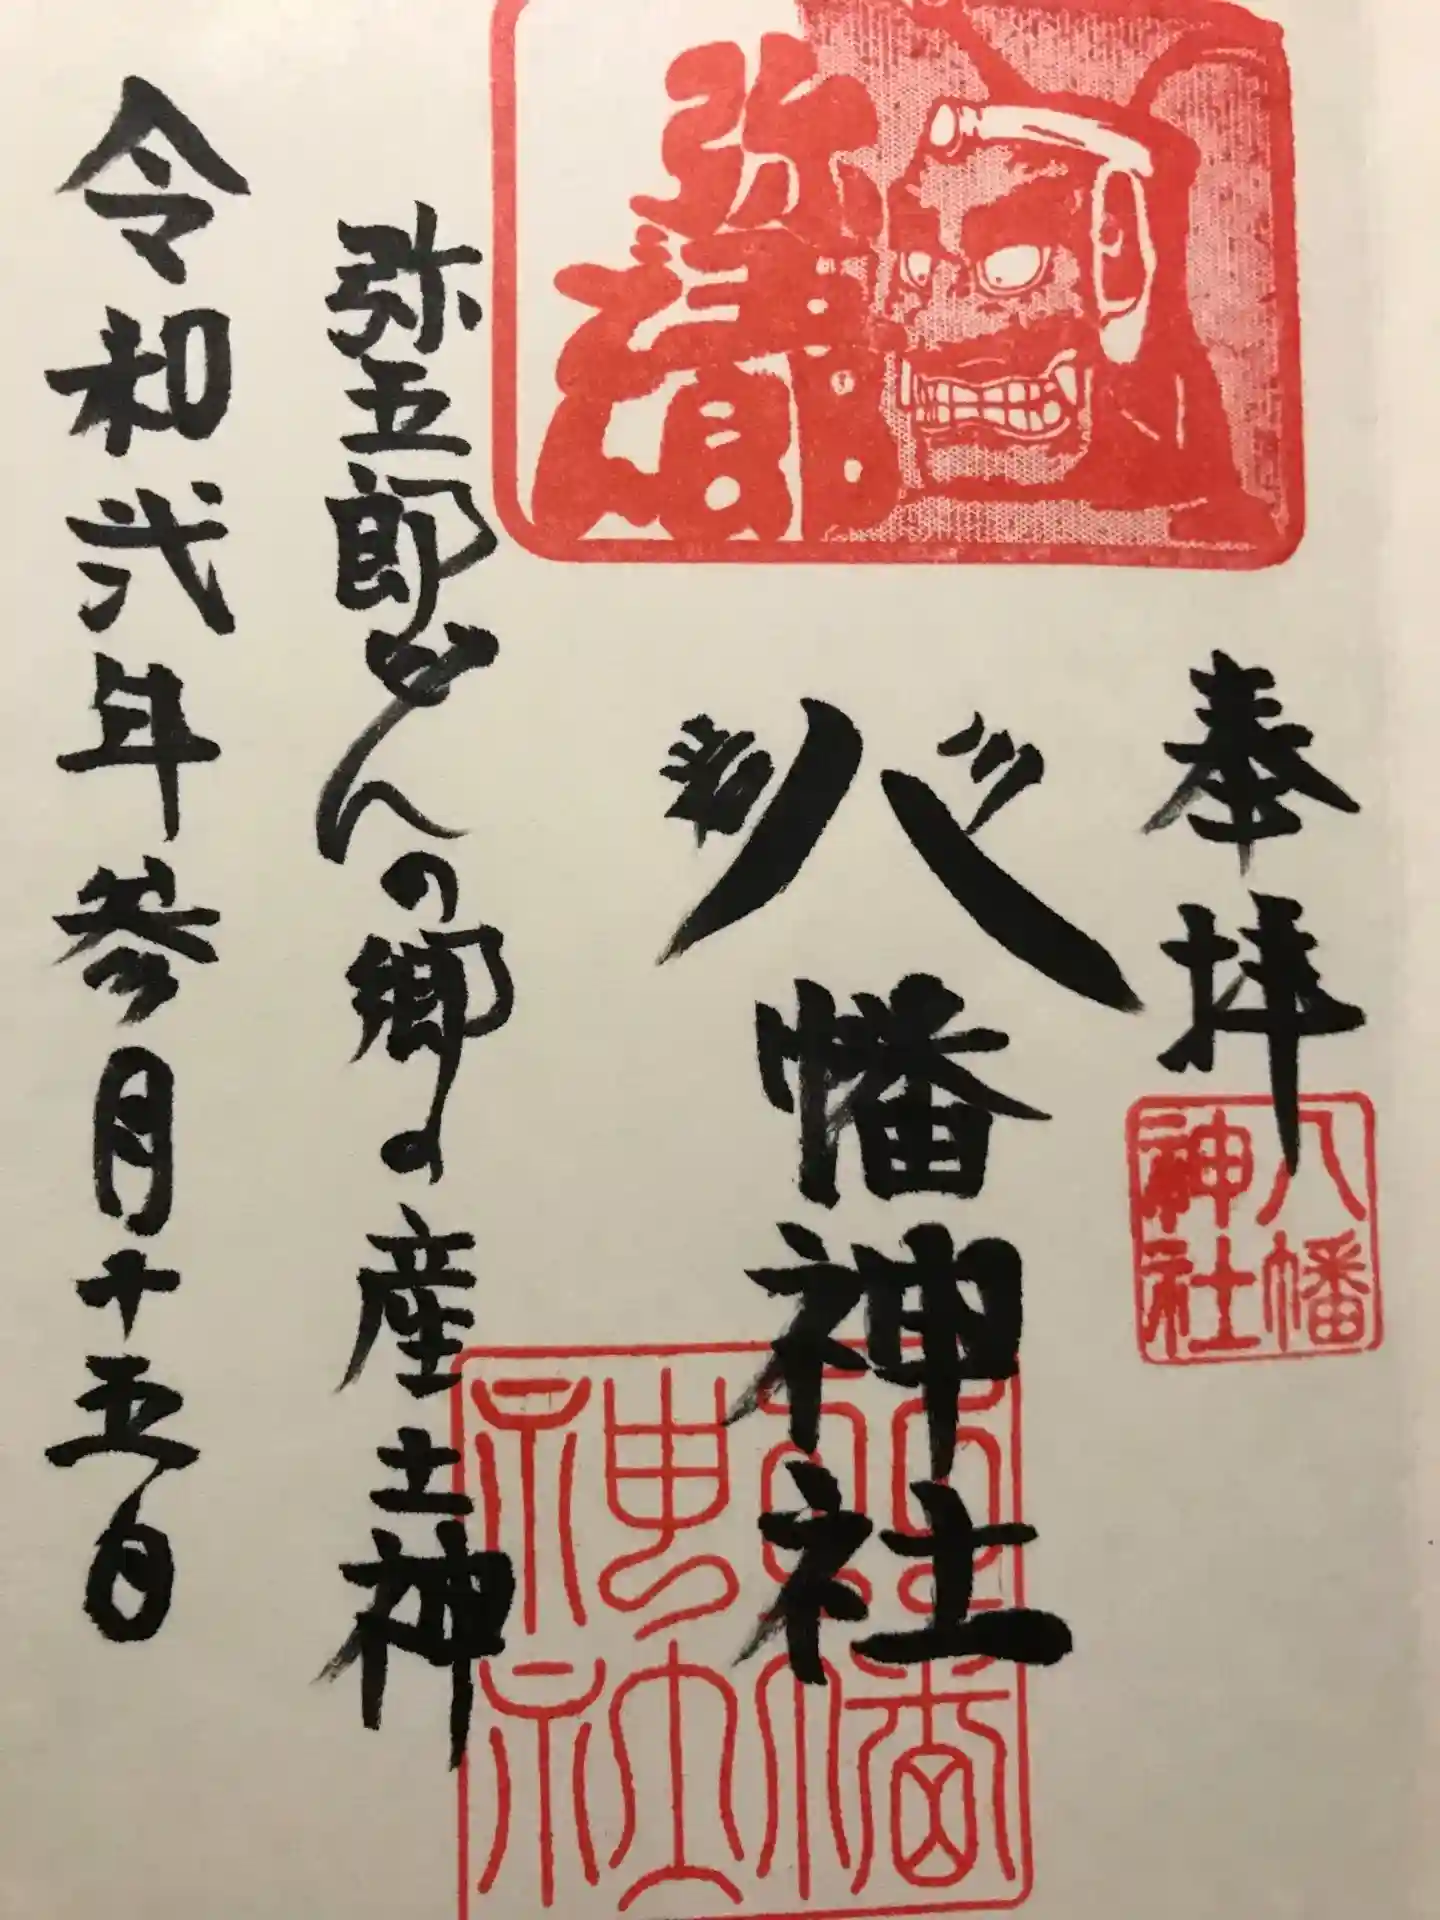 奉拝
八幡神社
岩川
八幡神社
八幡神社
弥五郎どんの郷の産土神
令和弐年参月十五日